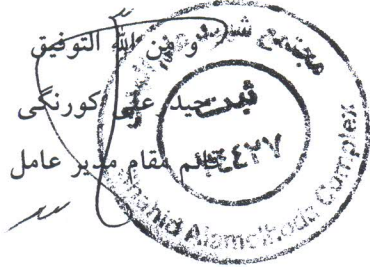 و من الله التوفیق
حیدر علی کورنگی
قائم مقام مدیر عامل
مجتمع شهید
ثبت
Shahid Alamolhoda Complex